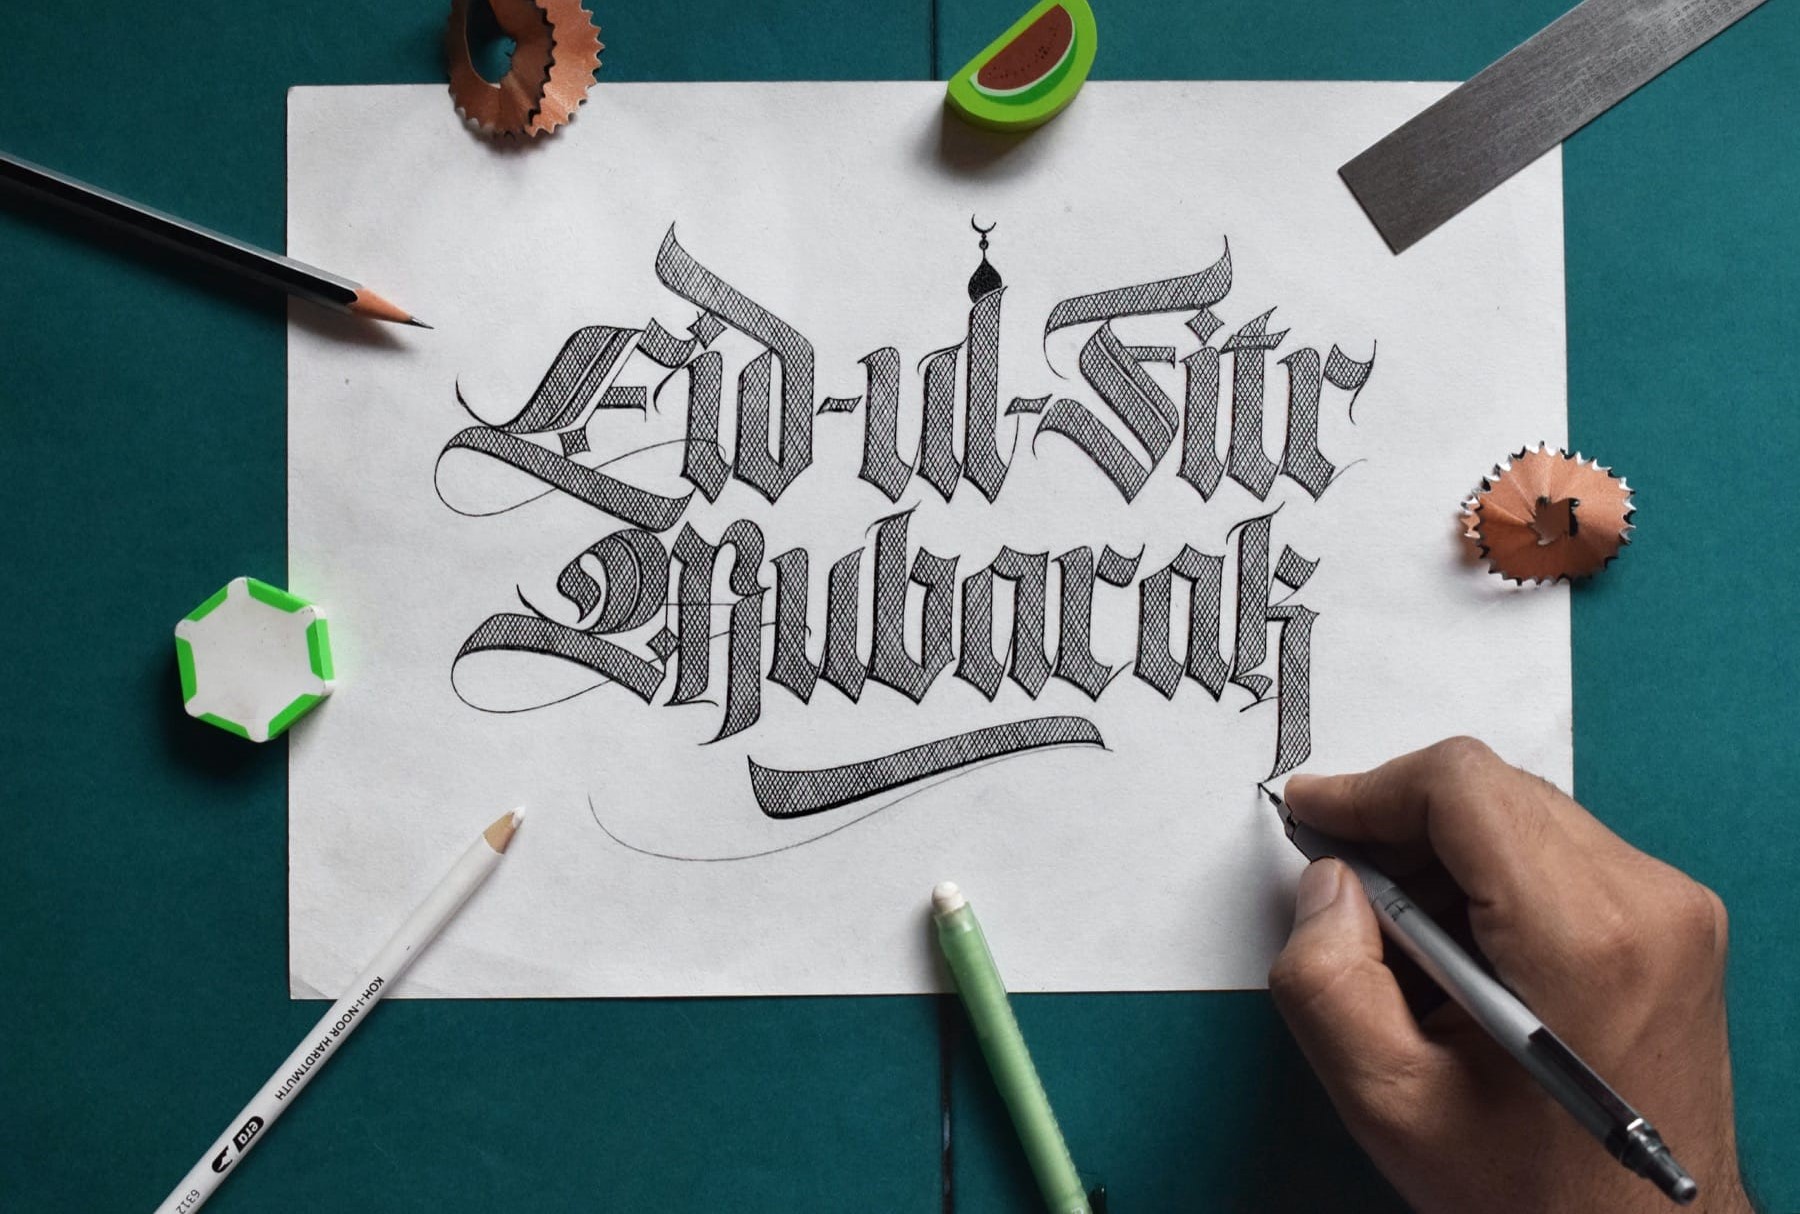 Eid-ul-Fitr
Mubarak
KOH-I-NOOR HARDTMUTH
era
6312